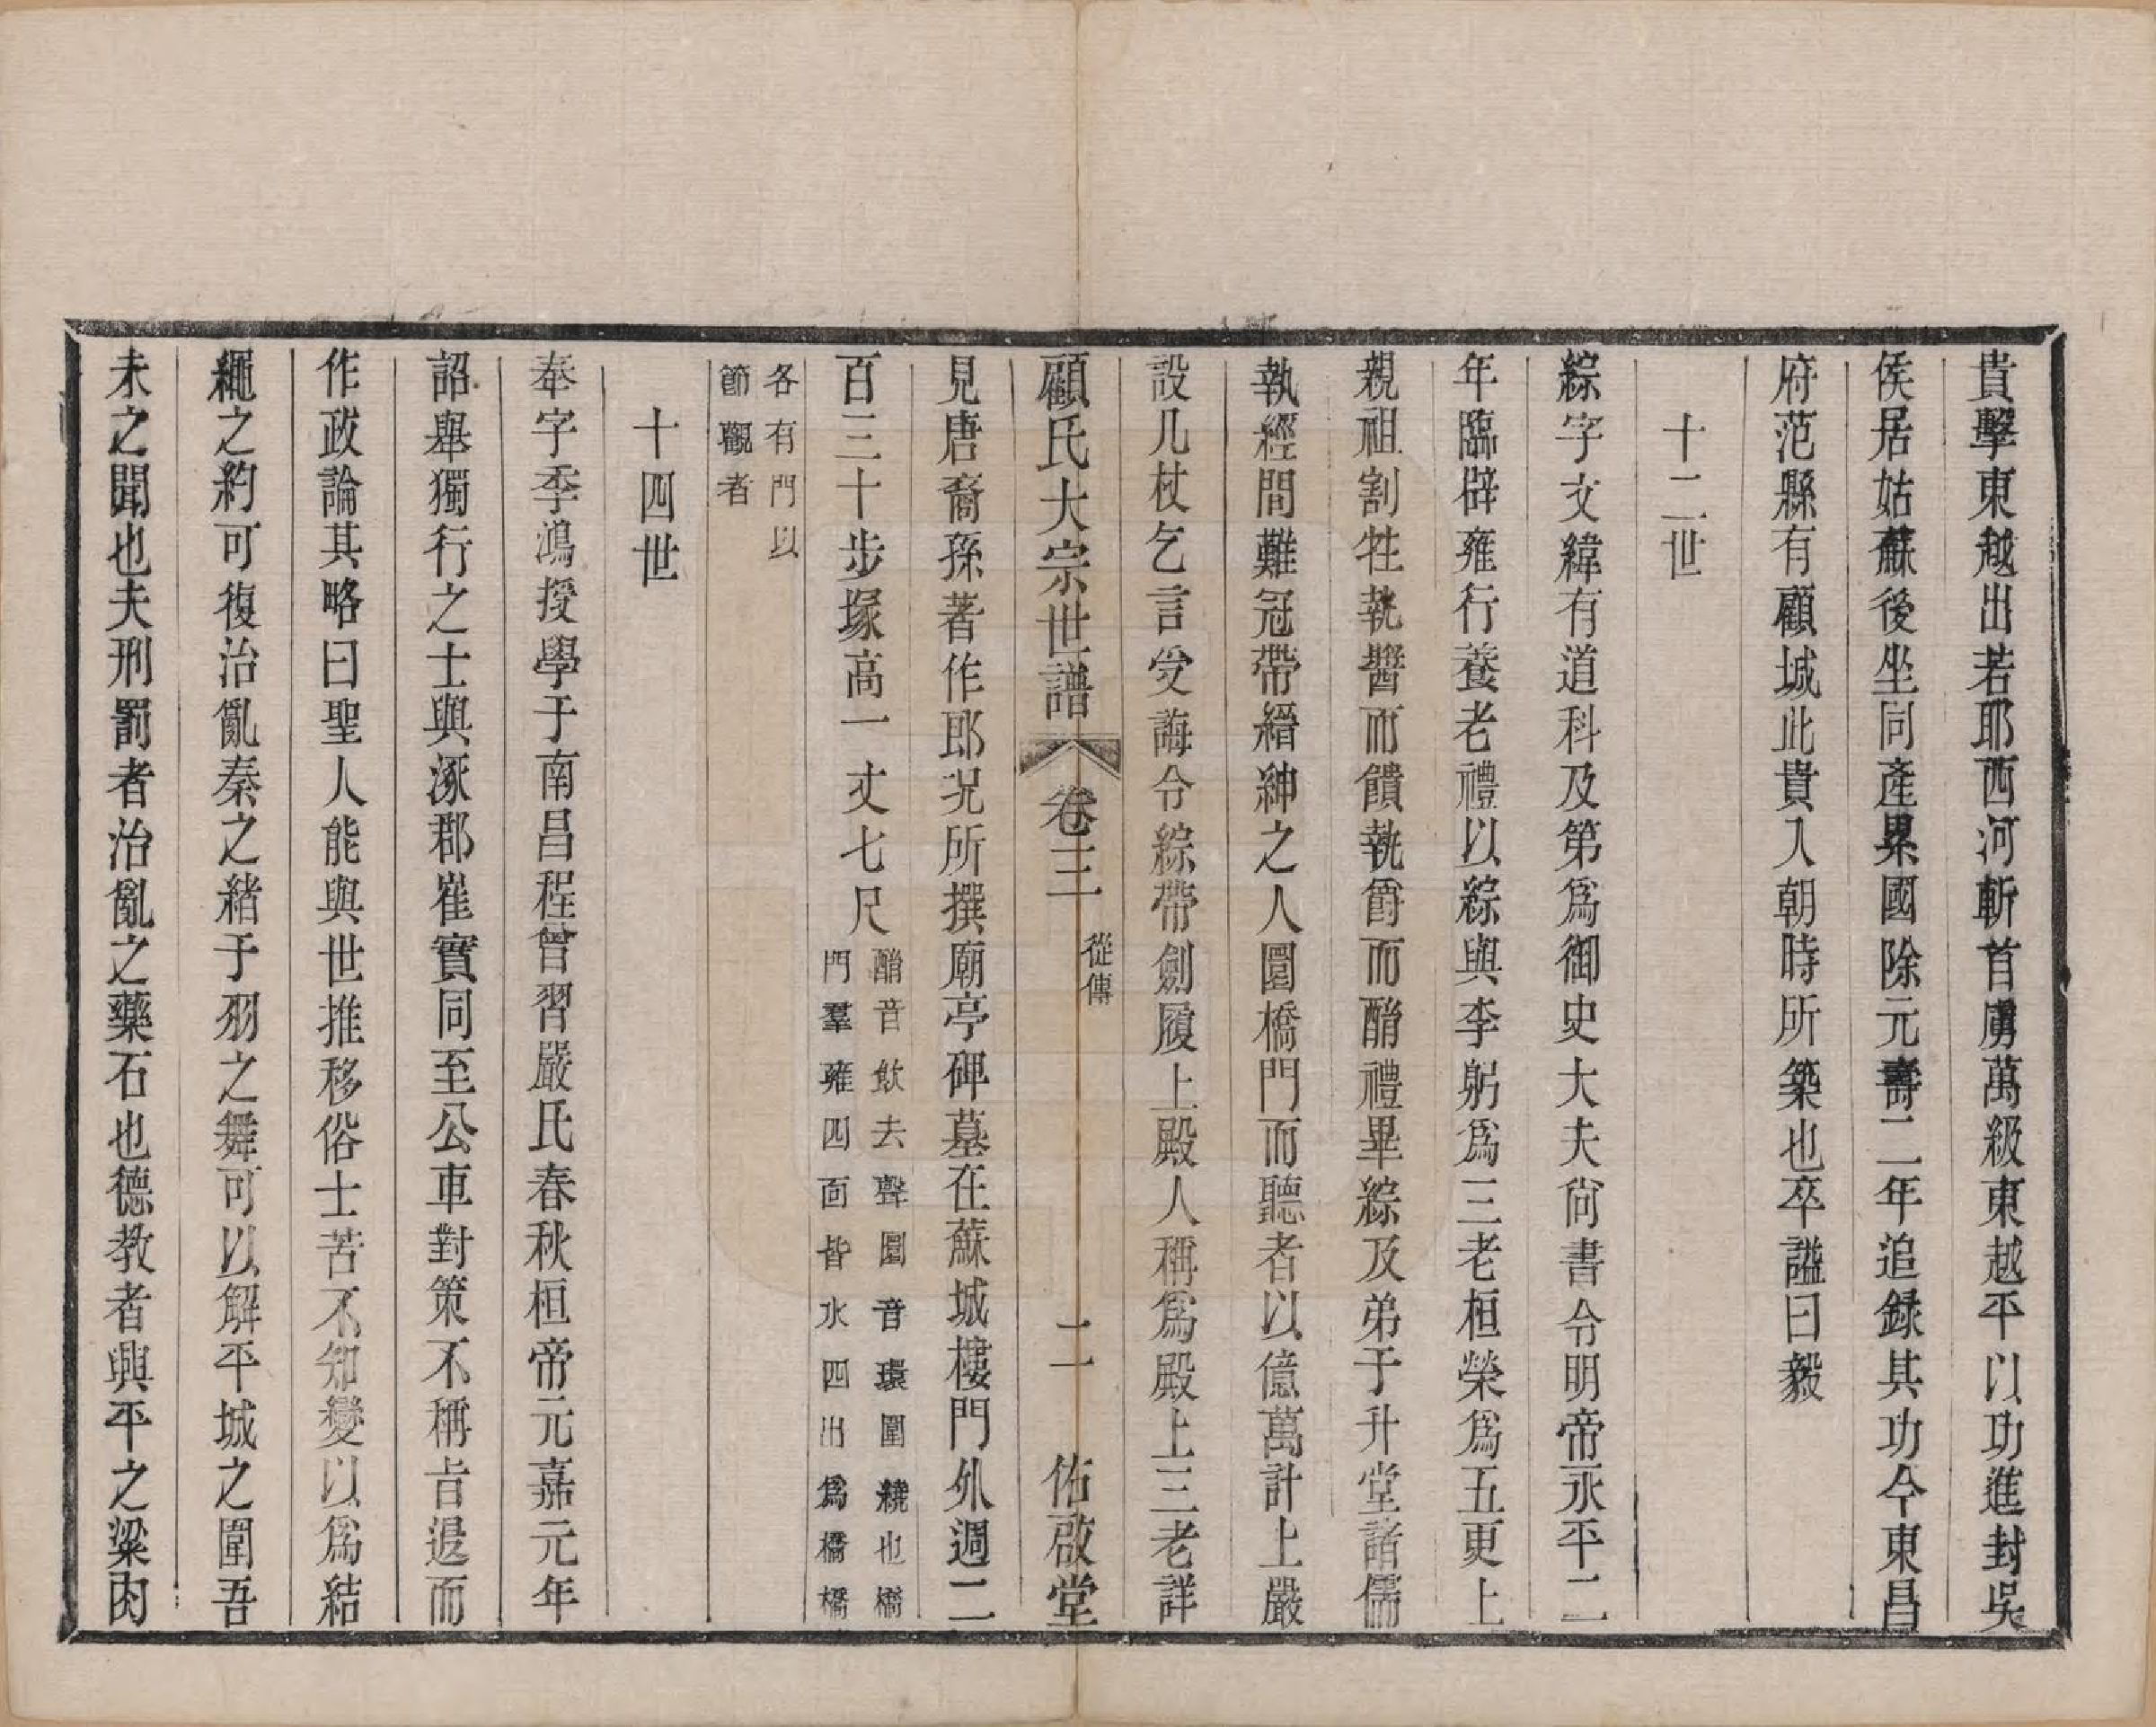 貴擊東越出若耶西河斬首虜萬級東越平以功進封吳
侯居姑蘇後坐同產累國除元壽二年追錄其功今東昌
府范縣有顧城此貴入朝時所築也卒謚曰毅
十二世
綜字文緯有道科及第爲御史大夫尙書令明帝永平二
年臨辟雍行養老禮以綜與李躬爲三老桓榮爲五更上
親祖割牲執醬而饋執爵而酳禮畢綜及弟于升堂諸儒
執經問難冠帶縉紳之人圜橋門而聽者以億萬計上嚴
設几杖乞言受誨令綜帶劍履上殿人稱爲殿上三老詳
顧氏大宗世譜 卷三 從傳 二 佑啟堂
見唐裔孫著作郎況所撰廟亭碑墓在蘇城樓門外週二
百三十步塚高一丈七尺
酳音飲去聲圜音環圍繞也橋
門羣雍四面皆水四出爲橋橋
各有門以
節觀者
十四世
奉字季鴻授學于南昌程曾習嚴氏春秋桓帝元嘉元年
詔舉獨行之士與涿郡崔實同至公車對策不稱旨退而
作政論其略曰聖人能與世推移俗士苦不知變以爲結
繩之約可復治亂秦之緒于羽之舞可以解平城之圍吾
未之聞也夫刑罰者治亂之藥石也德教者興平之粱肉